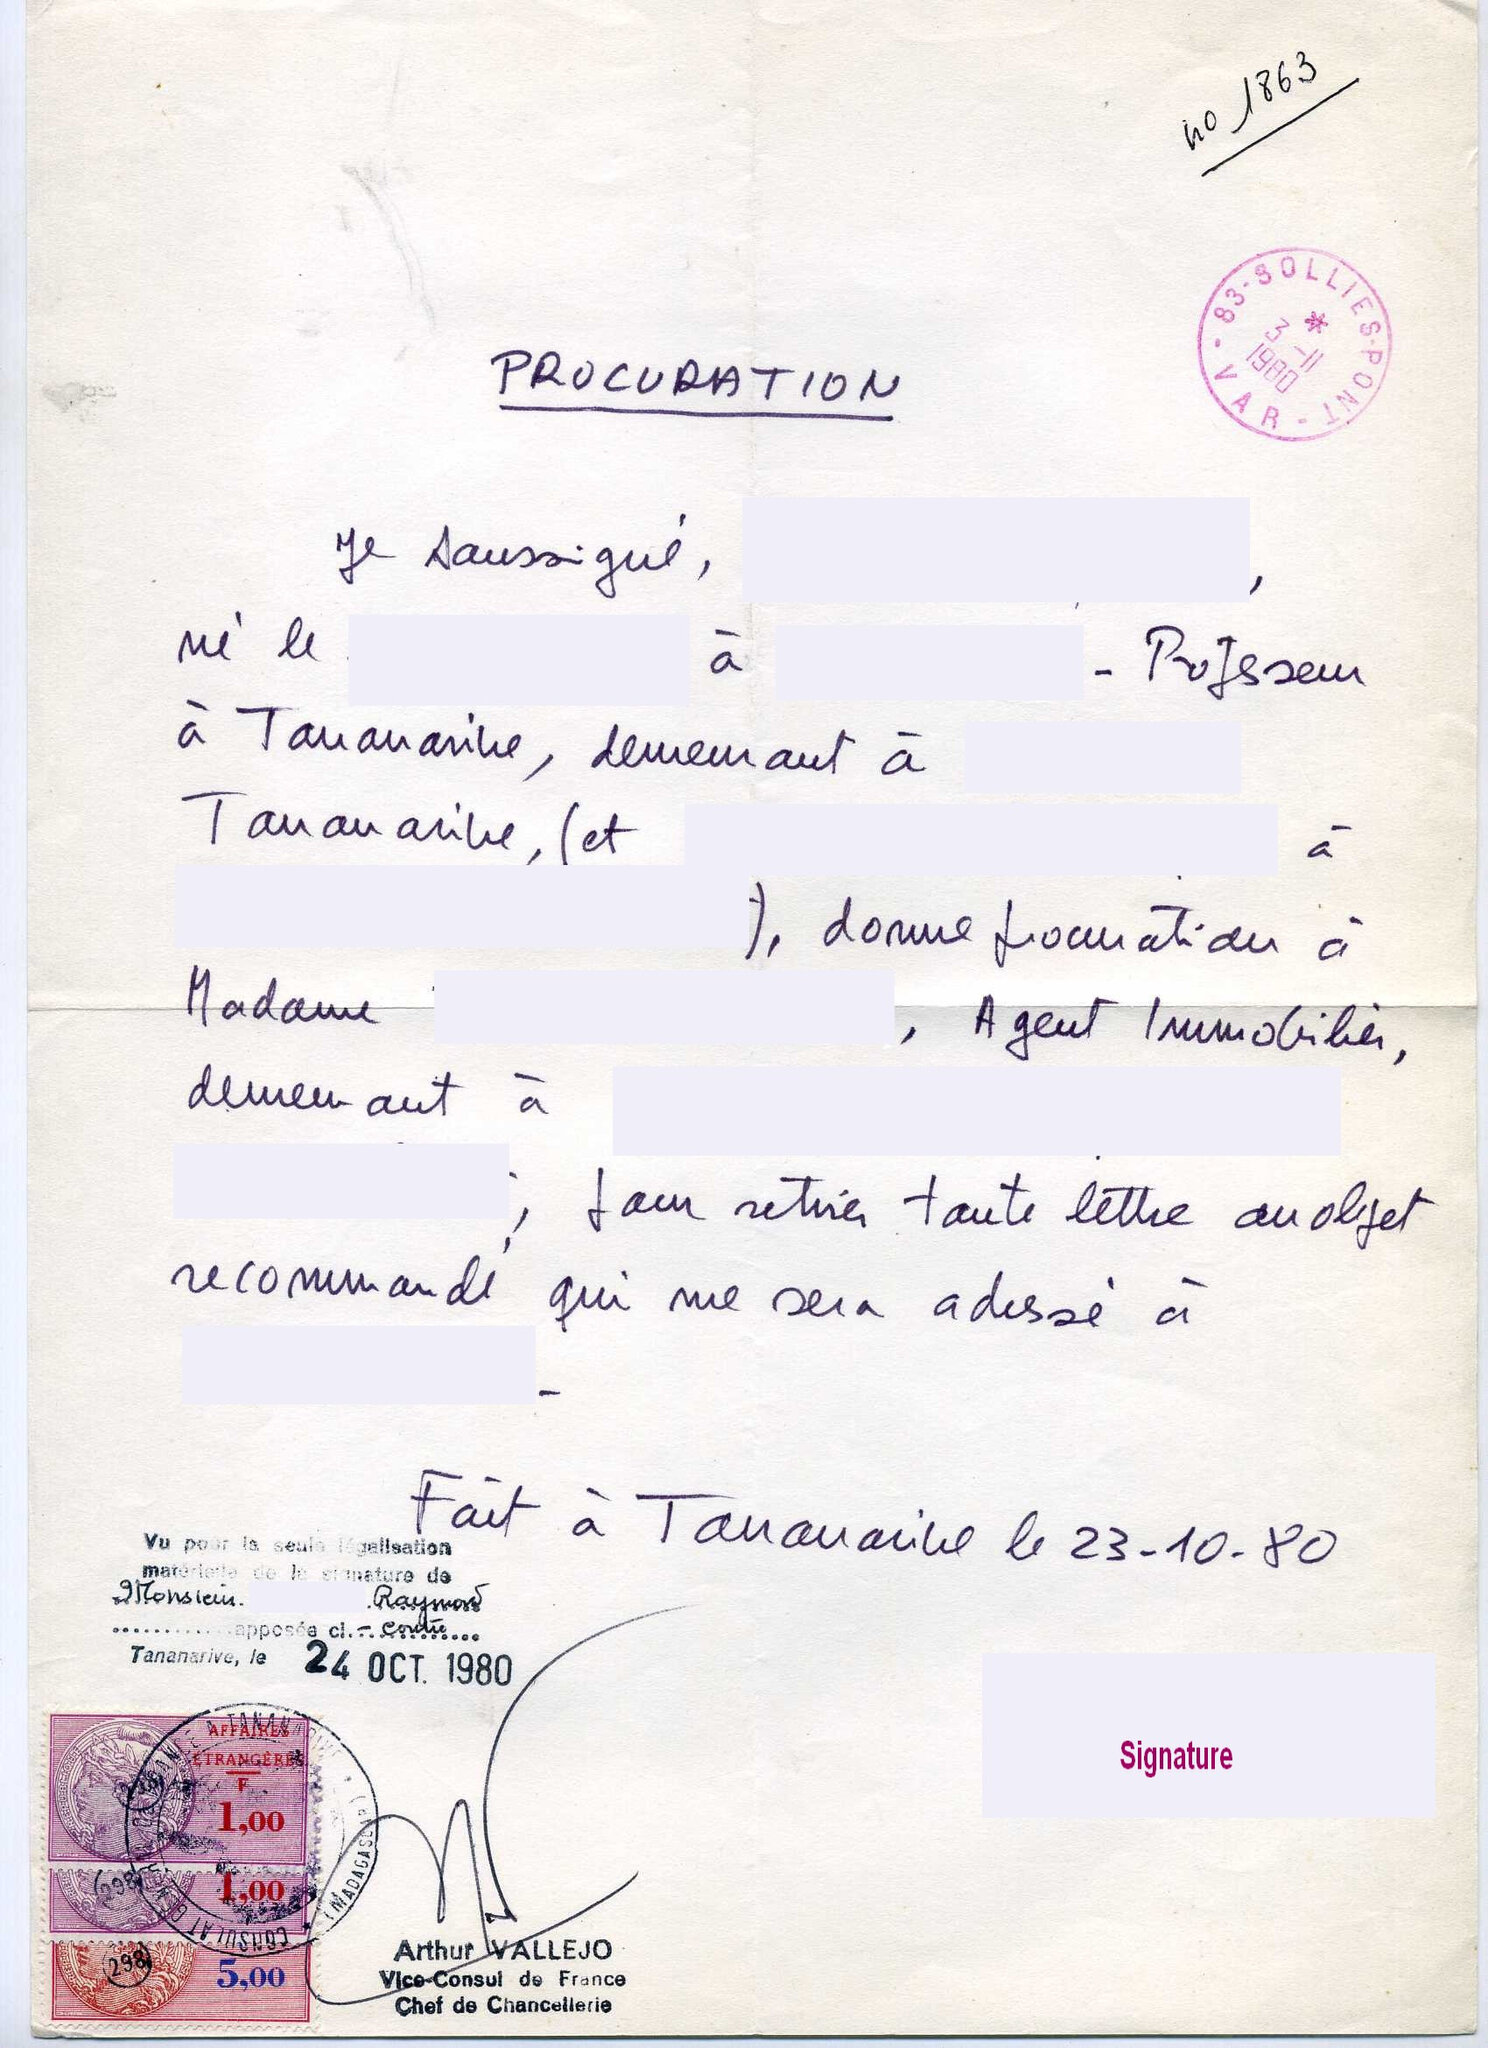 no 1863
83-SOLLIES-PONT
*
3-11
1980
- VAR -
PROCURATION
Je soussigné, ,
né le à - Professeur
à Tananarive, demeurant à
Tananarive, (et à
), donne procuration à
Madame , Agent Immobilier,
demeurant à
, pour retirer toute lettre ou objet
recommandé qui me sera adressé à
-
Fait à Tananarive le 23-10-80
Vu pour la seule légalisation
matérielle de la signature de
Monsieur Raymond
apposée ci - contre
Tananarive, le 24 OCT. 1980
Signature
AFFAIRES
ETRANGÈRES
F
1,00
1,00
5,00
298
298
CONSULAT GENERAL DE FRANCE A TANANARIVE
(MADAGASCAR)
Arthur VALLEJO
Vice-Consul de France
Chef de Chancellerie